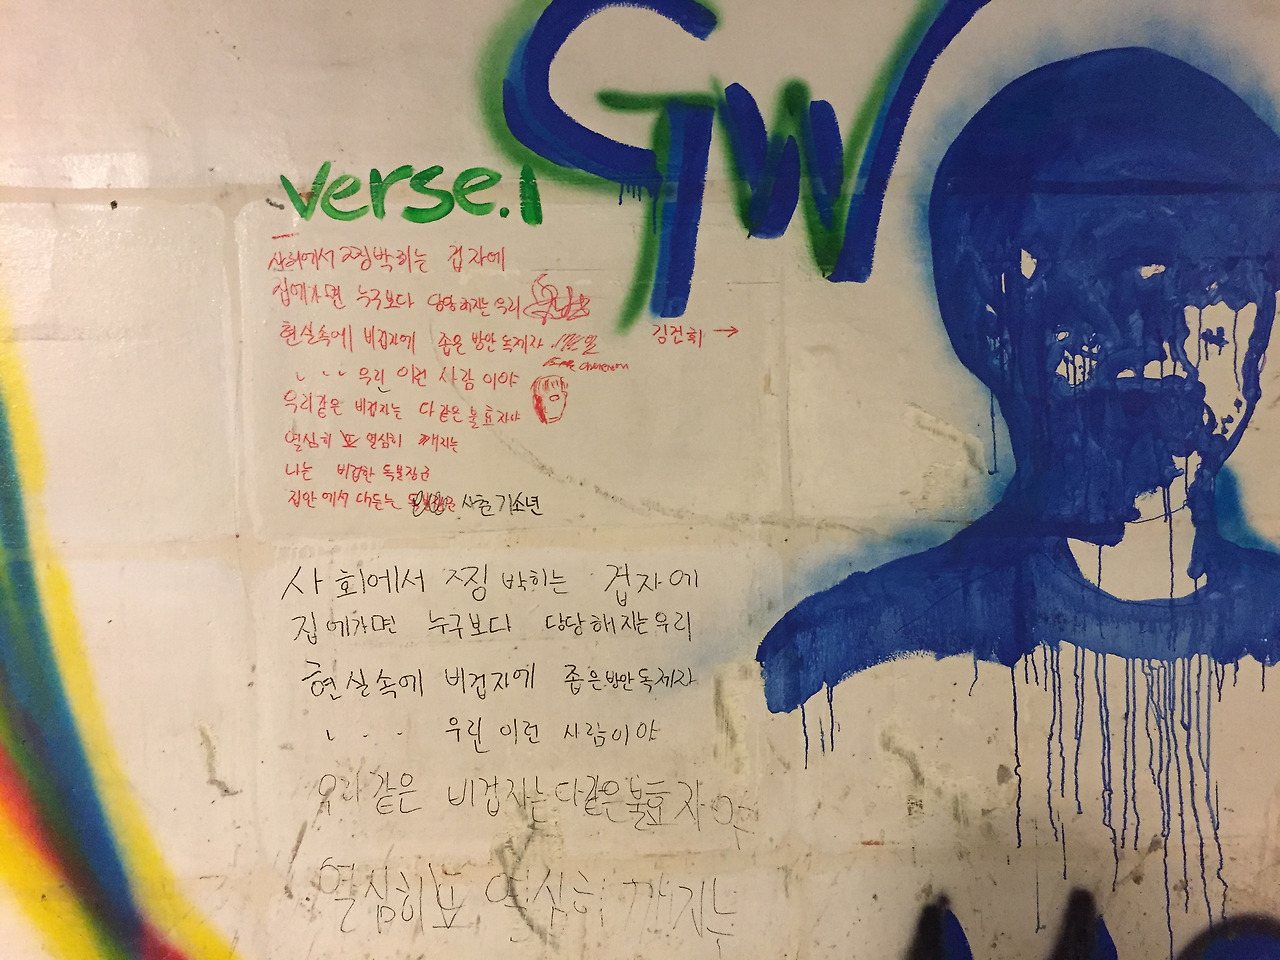 GW
verse.1
사회에서 찌징박히는 겁자에
집에가면 누구보다 당당해지는 우리
현실속에 비겁자에 좁은 방안 독제자
김건희 →
우린 이런 사람 이야
우리같은 비겁자는 다 같은 불효자야
열심히 또 열심히 깨지는
나는 비겁한 독불장군
집안 에서 다듣는 사춘기소년
사회에서 찌징 박히는 겁자에
집에가면 누구보다 당당해지는우리
현실속에 비겁자에 좁은방안독제자
우린 이런 사람이야
우리같은 비겁자는다같은불효자야
열심히또 열심히 깨지는